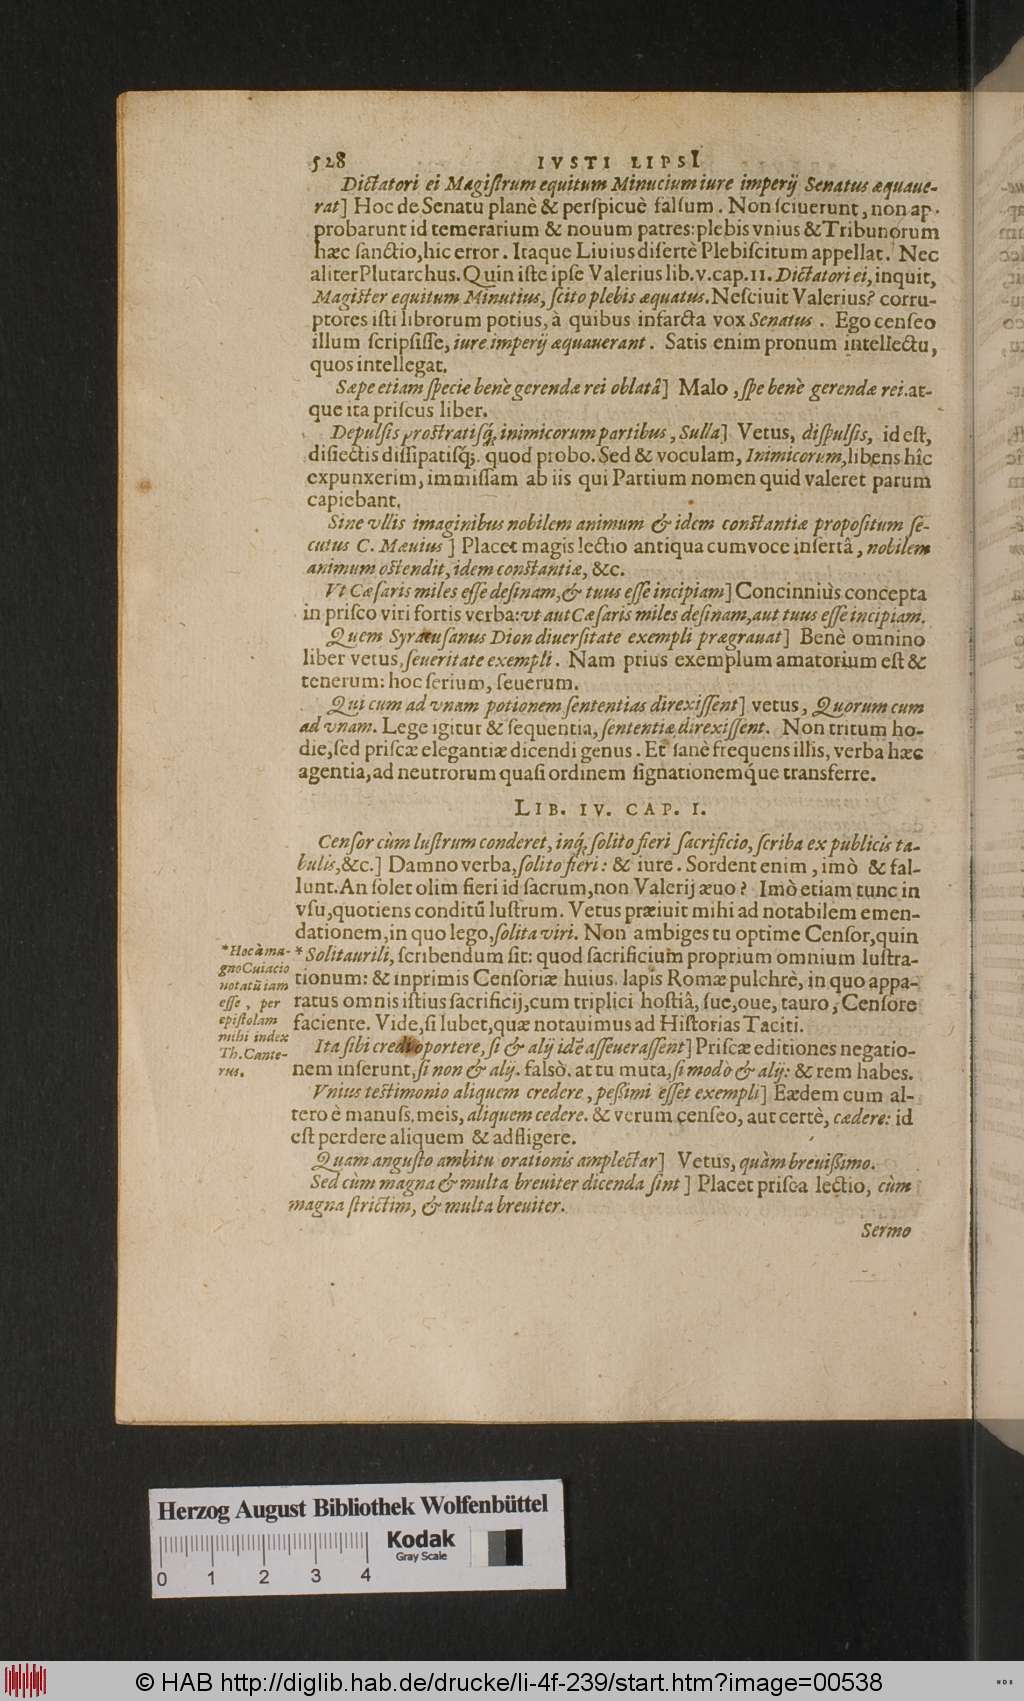 528 IVSTI LIPSI
Dictatori ei Magiſtrum equitum Minucium iure imperij Senatus æquaue-
rat] Hoc de Senatu planè & perſpicuè falſum. Non ſciuerunt, non ap-
probarunt id temerarium & nouum patres: plebis vnius & Tribunorum
hæc ſanctio, hic error. Itaque Liuius diſertè Plebiſcitum appellat. Nec
aliter Plutarchus. Quin iſte ipſe Valerius lib. v. cap. 11. Dictatori ei, inquit,
Magiſter equitum Minutius, ſcito plebis æquatus. Neſciuit Valerius? corru-
ptores iſti librorum potius, à quibus infarcta vox Senatus. Ego cenſeo
illum ſcripſiſſe, iure imperij æquauerant. Satis enim pronum intellectu,
quos intellegat.
Sæpe etiam ſpecie benè gerendæ rei oblatâ] Malo, ſpe benè gerendæ rei. at-
que ita priſcus liber.
Depulſis proſtratiſq́; inimicorum partibus, Sulla] Vetus, diſpulſis, id eſt,
diſiectis diſſipatiſq́;. quod probo. Sed & voculam, Inimicorum, libens hîc
expunxerim, immiſſam ab iis qui Partium nomen quid valeret parum
capiebant.
Sine vllis imaginibus nobilem animum & idem conſtantiæ propoſitum ſe-
cutus C. Mæuius] Placet magis lectio antiqua cum voce inſertâ, nobilem
animum oſtendit, idem conſtantiæ, &c.
Vt Cæſaris miles eſſe deſinam, & tuus eſſe incipiam] Concinniùs concepta
in priſco viri fortis verba: vt aut Cæſaris miles deſinam, aut tuus eſſe incipiam.
Quem Syracuſanus Dion diuerſitate exempli prægrauat] Benè omnino
liber vetus, ſeueritate exempli. Nam prius exemplum amatorium eſt &
tenerum: hoc ſerium, ſeuerum.
Qui cum ad vnam potionem ſententias direxiſſent] vetus, Quorum cum
ad vnam. Lege igitur & ſequentia, ſententiæ direxiſſent. Non tritum ho-
die, ſed priſcæ elegantiæ dicendi genus. Et ſanè frequens illis, verba hæc
agentia, ad neutrorum quaſi ordinem ſignationemque transferre.
LIB. IV. CAP. I.
Cenſor cùm luſtrum conderet, inq́; ſolito fieri ſacrificio, ſcriba ex publicis ta-
bulis, &c.] Damno verba, ſolito fieri: & iure. Sordent enim, imò & fal-
lunt. An ſolet olim fieri id ſacrum, non Valerij æuo? Imò etiam tunc in
vſu, quotiens conditũ luſtrum. Vetus præiuit mihi ad notabilem emen-
dationem, in quo lego, ſolita viri. Non ambiges tu optime Cenſor, quin
* Solitaurili, ſcribendum ſit: quod ſacrificium proprium omnium luſtra-
tionum: & inprimis Cenſoriæ huius. lapis Romæ pulchrè, in quo appa-
ratus omnis iſtius ſacrificij, cum triplici hoſtiâ, ſue, oue, tauro, Cenſore
faciente. Vide, ſi lubet, quæ notauimus ad Hiſtorias Taciti.
* Hoc à ma-
gno Cuiacio
notatũ iam
eſſe, per
epiſtolam
mihi index
Th. Cante-
rus.
Ita ſibi credi oportere, ſi & alij idẽ aſſeueraſſent] Priſcæ editiones negatio-
nem inſerunt, ſi non & alij. falsò. at tu muta, ſi modò & alij: & rem habes.
Vnius teſtimonio aliquem credere, peßimi eſſet exempli] Eædem cum al-
tero è manuſ. meis, aliquem cedere. & verum cenſeo, aut certè, cædere: id
eſt perdere aliquem & adfligere.
Quam anguſto ambitu orationis amplectar] Vetus, quàm breuißimo.
Sed cùm magna & multa breuiter dicenda ſint] Placet priſca lectio, cùm
magna ſtrictim, & multa breuiter.
Sermo
Herzog August Bibliothek Wolfenbüttel
Kodak
Gray Scale
0 1 2 3 4
© HAB http://diglib.hab.de/drucke/li-4f-239/start.htm?image=00538